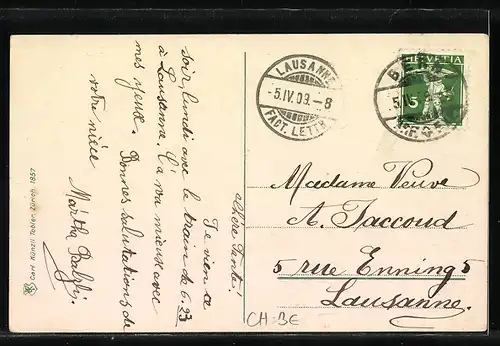 chère Tante!
Je vien ce
soir, lundi avec le train de 6.23
à Lausanne. C'a va mieux avec
mes yeux. Bonnes salutations de
votre nièce
Märtha
LAUSANNE
-5.IV.09.-8
FACT. LETTR.
HELVETIA
5
Madame Veuve
A. Jaccoud
5 rue Enning 5
Lausanne.
CH-BE